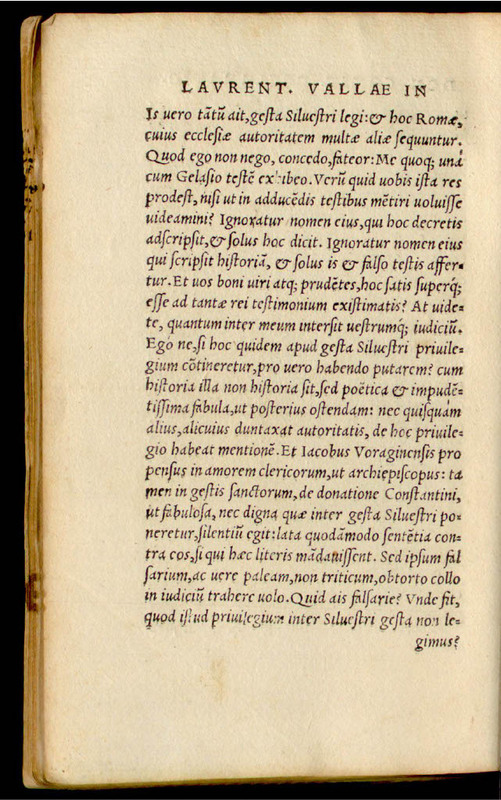 LAVRENT. VALLAE IN
Is vero tãtũ ait, gesta Siluestri legi: & hoc Romæ,
cuius ecclesiæ autoritatem multæ aliæ sequuntur.
Quod ego non nego, concedo, fateor: Me quoq; unà
cum Gelasio testẽ exhibeo. Verũ quid uobis ista res
prodest, nisi ut in adducẽdis testibus mẽtiri uoluisse
uideamini? Ignoratur nomen eius, qui hoc decretis
adscripsit, & solus hoc dicit. Ignoratur nomen eius
qui scripsit historiã, & solus is & falso testis affer-
tur. Et uos boni uiri atq; prudẽtes, hoc satis superq;
esse ad tantæ rei testimonium existimatis? At uide-
te, quantum inter meum intersit uestrumq; iudiciũ.
Ego ne, si hoc quidem apud gesta Siluestri priuile-
gium cõtineretur, pro uero habendo putarem? cum
historia illa non historia sit, sed poëtica & impudẽ-
tissima fabula, ut posterius ostendam: nec quisquam
alius, alicuius duntaxat autoritatis, de hoc priuile-
gio habeat mentionẽ. Et Iacobus Voraginensis pro
pensus in amorem clericorum, ut archiepiscopus: ta
men in gestis sanctorum, de donatione Constantini,
ut fabulosa, nec digna quæ inter gesta Siluestri po-
neretur, silentiũ egit: lata quodãmodo sentẽtia con-
tra eos, si qui hæc literis mãdauissent. Sed ipsum fal
sarium, ac uere paleam, non triticum, obtorto collo
in iudiciũ trahere uolo. Quid ais falsarie? Vnde fit,
quod istud priuilegium inter Siluestri gesta non le-
gimus?